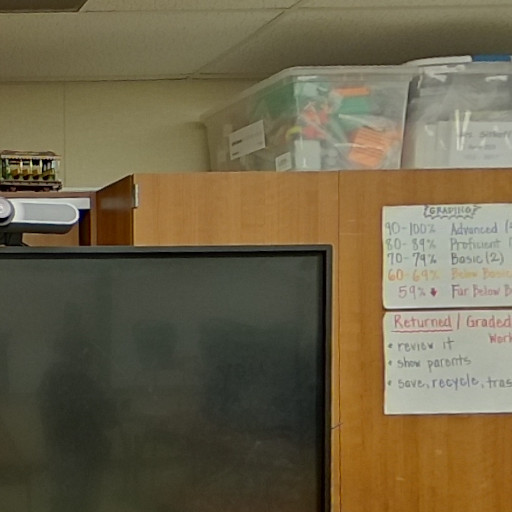 GRADING
90-100% Advanced (4
80-89% Proficient (
70-79% Basic (2)
60-69% Below Basic
59% ↓ Far Below B
Returned / Graded
Work
• review it
• show parents
• save, recycle, tras